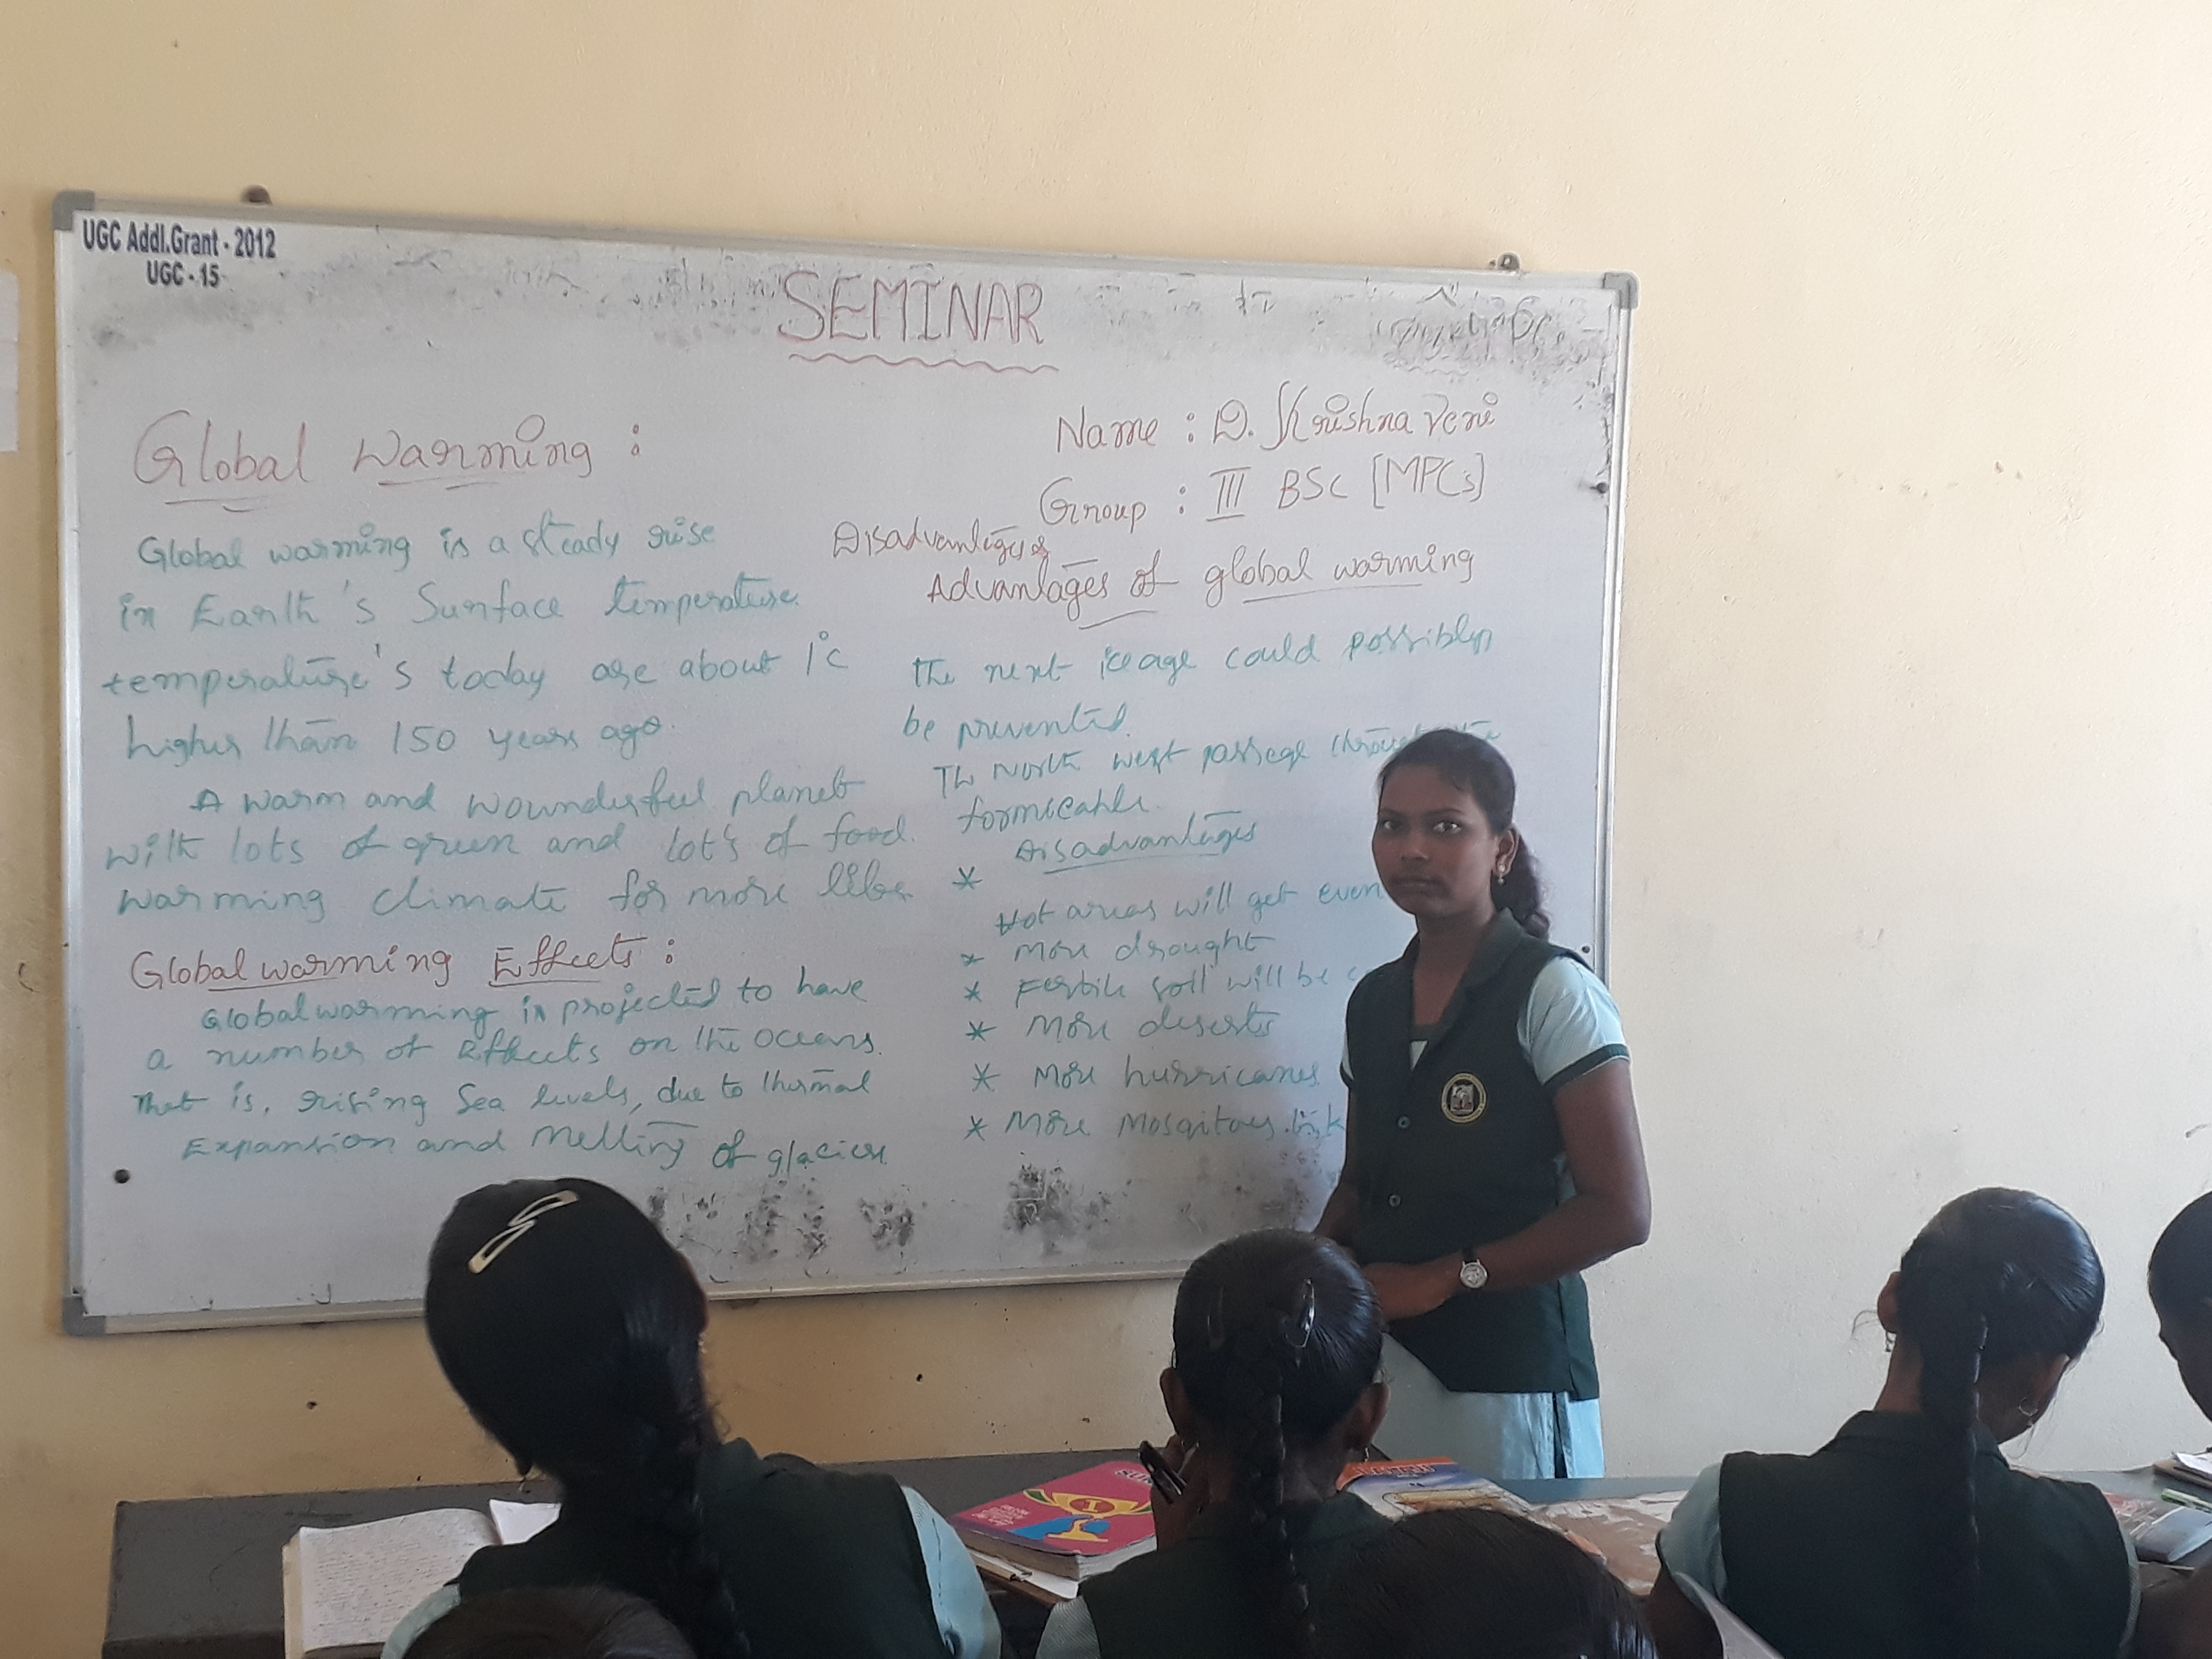 UGC Addl.Grant - 2012
UGC - 15
SEMINAR
Global Warming :
Global warming is a steady rise
in Earth's Surface temperature.
temperature's today are about 1°c
higher than 150 years ago.
A warm and wounderful planet
with lots of green and lot's of food.
warming climate for more
Global warming Effects :
Global warming is projected to have
a number of Effects on the oceans.
That is, rising Sea levels, due to thermal
Expansion and melting of glaciers
Name : D. Krishna Veni
Group : III BSC [MPCs]
Disadvantages &
Advantages of global warming
The next ice age could possibly
be prevented.
The North west passage through the
Disadvantages
*
Hot areas will get even
* more drought
* Fertile soll will be
* More deserts
* More hurricanes
* More Mosqitoys.